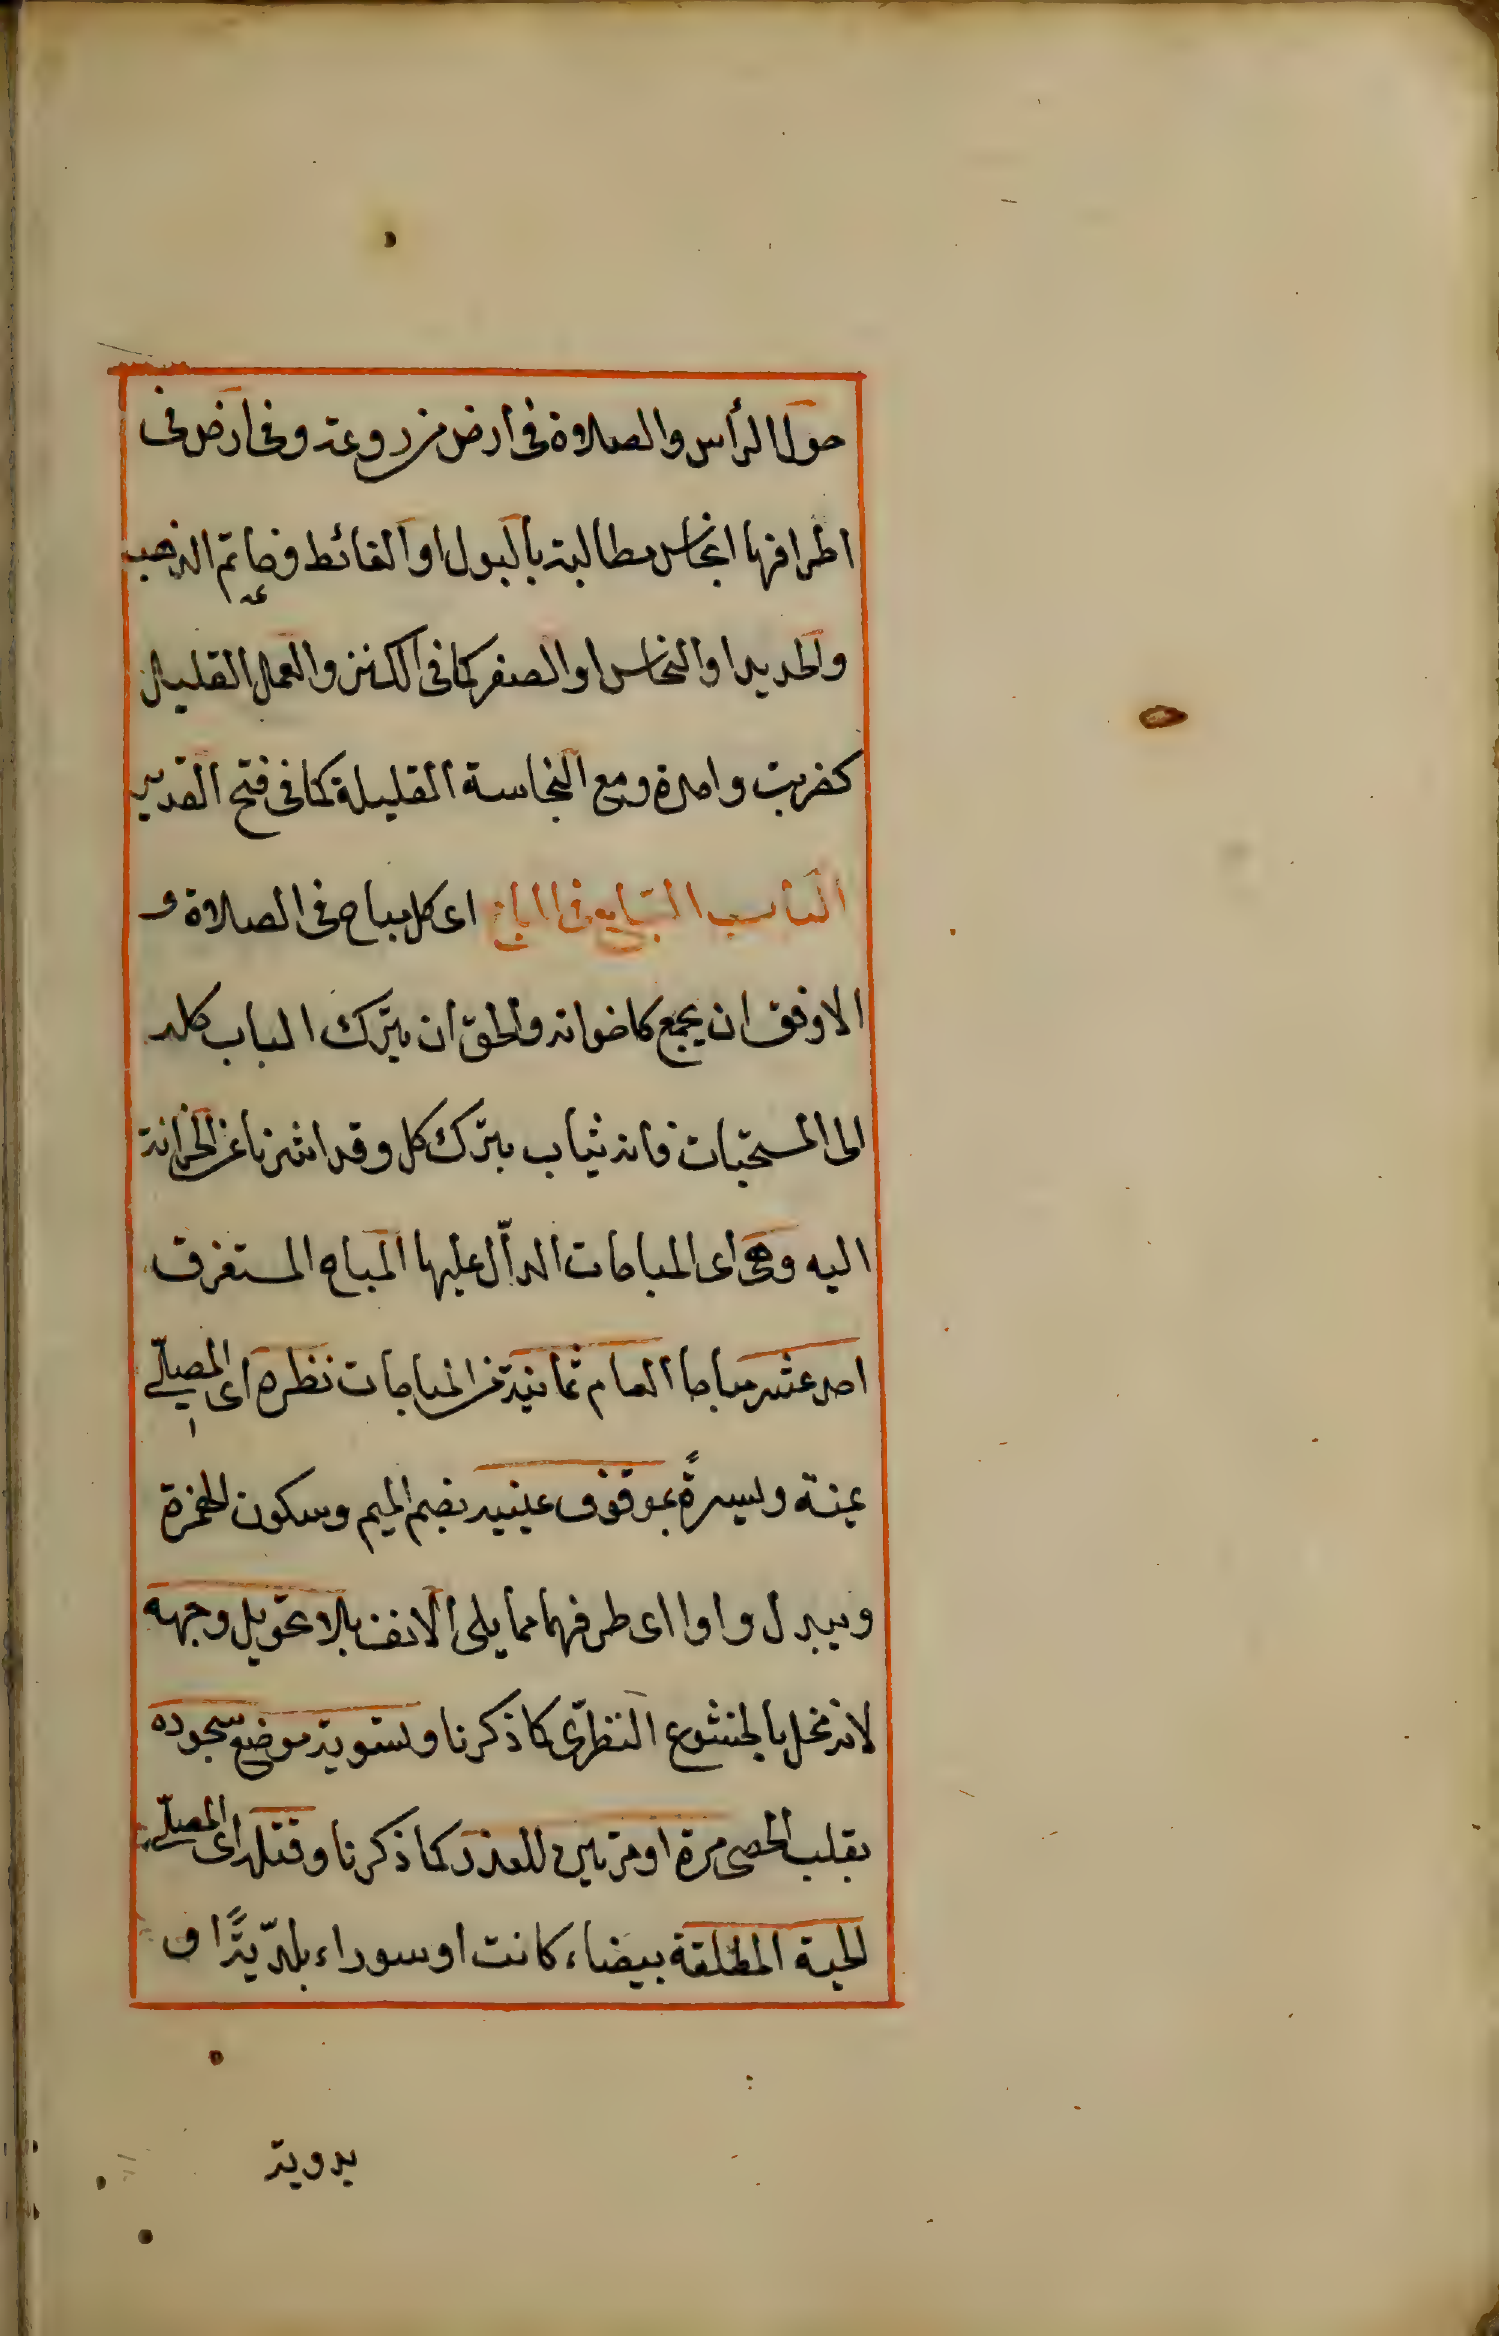 حول الرأس والصلاة فى ارض مزروعة وفى ارض فى
اطرافها انجاس مطالبة بالبول او الغائط وخاتم الذهب
والحديد او النحاس او الصفر كما فى الكنز والعمل القليل
كضربت وامرة ومع النجاسة القليلة كما فى فتح القدير
الباب السابع فى المباح اى كل مباح فى الصلاة و
الاوفق ان يجمع كاخواته والحق ان يترك الباب كله
الى المستحبات فانه يثاب بترك كل وقد اشرنا عن الخزانة
اليه وهى اى المباحات الدال عليها المباح المستغرق
احد عشر مباحا العام ثمانية من المباحات نظره اى المصلى
يمنة ويسرةً بموقوف عينيه بضم الميم وسكون الهمزة
ويبدل واوا اى طرفهما مما يلى الانف بلا تحويل وجهه
لانه مخل بالخشوع النظرى كما ذكرنا وتسوية موضع سجوده
بقلب الحصى مرة او مرتين للعذر كما ذكرنا وقتله اى المصلى
الحية المطلقة بيضاء كانت او سوداء بلديّةً او
بدوية